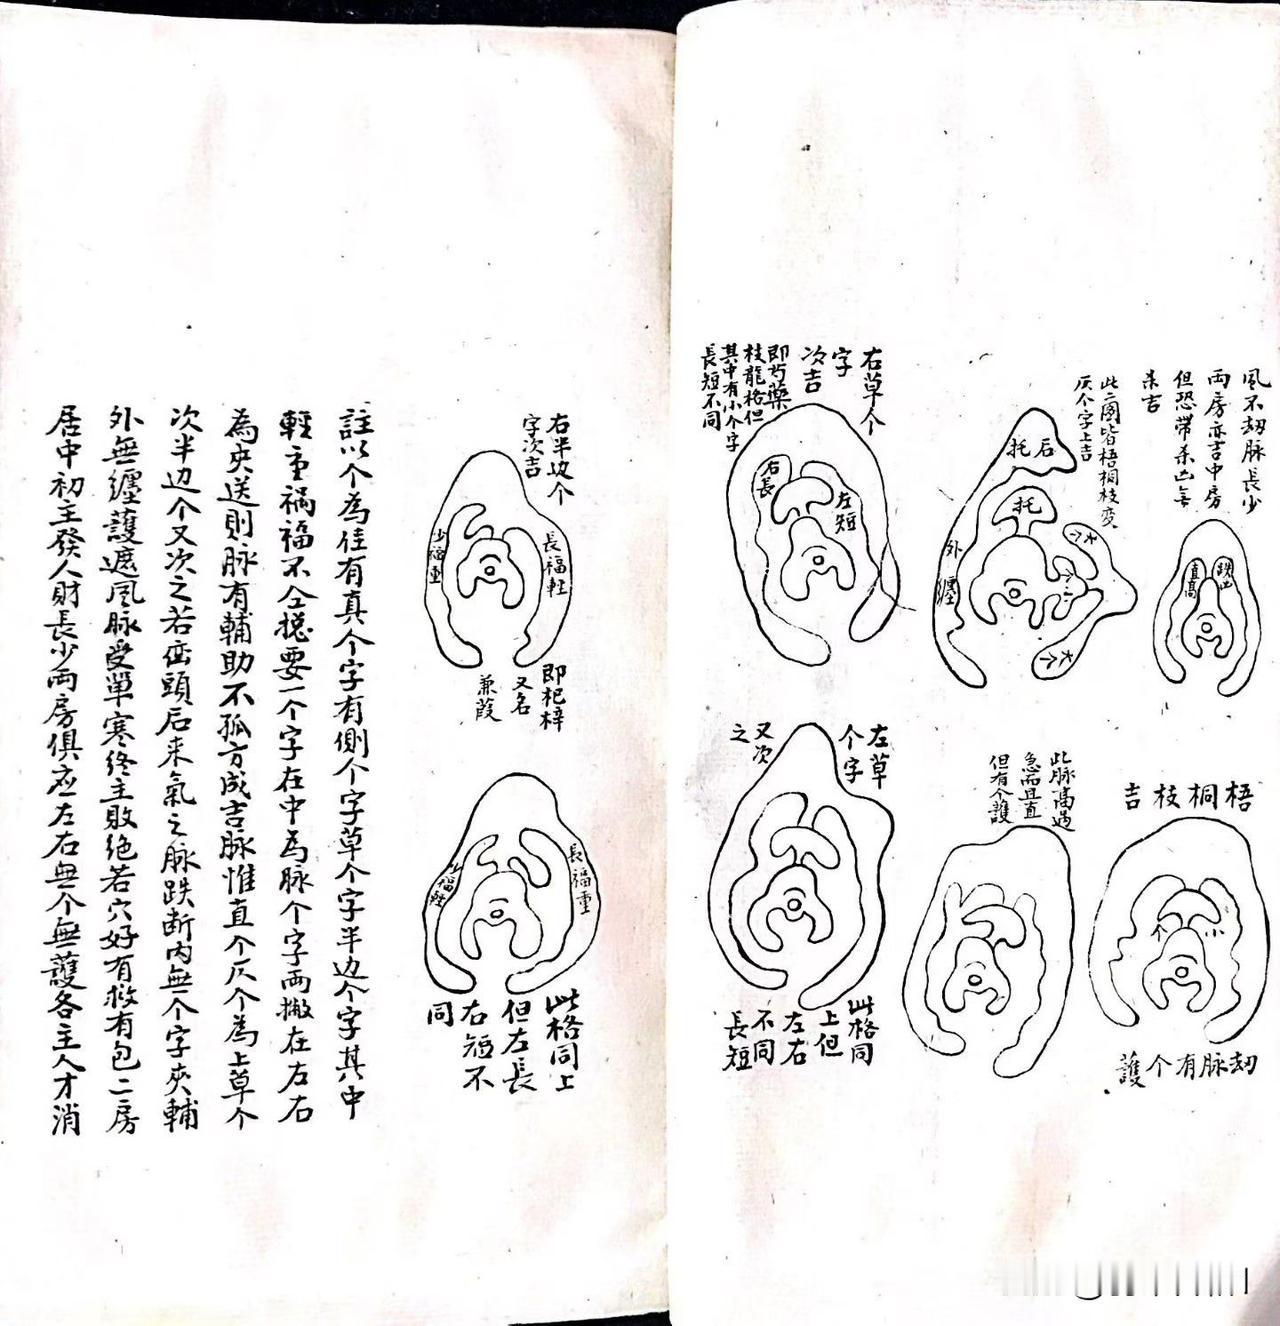 風不刼脉長少
両房亦吉中房
但恐带杀凶年
杀吉
直高
跌凶
此二图皆梧桐枝变
仄个字上吉
后托
托
外纏
大个
小个
大个
右草个
字
次吉
即芍藥
枝龍格但
其中有小个字
長短不同
右長
左短
梧桐枝吉
个
小
刼脉有个護
此脉高過
急而且直
但有个護
左草
个字
又次
之
此格同
上但
左右
不同
長短
右半边个
字次吉
長福軽
少福重
即杞梓
又名
蒹葭
長福重
少福軽
此格同上
但左長
右短不
同
註以个為佳有真个字有側个字草个字半边个字其中
輕重禍福不仝揔要一个字在中為脉个字両撇在左右
為夾送則脉有輔助不孤方成吉脉惟直个仄个為上草个
次半边个又次之若峦頭后来氣之脉跌断内無个字夾輔
外無纏護遮風脉受單寒終主敗绝若穴好有救有包二房
居中初主發人財長少両房俱应左右無个無護各主人才消